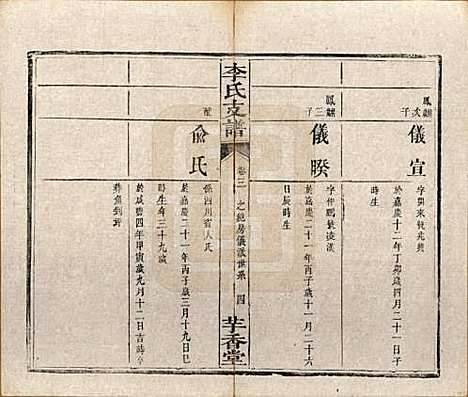 鳳麒次子
儀宣
字開來號兆熊
於嘉慶十二年丁卯歲四月二十一日子
時生
鳳麒三子
儀睽
字仲鵬號凌漢
於嘉慶二十一年丙子歲十一月二十六
日辰時生
李氏支譜
卷三
之純房儀派世系
四
芋香堂
配
俞氏
係四川省人氏
於嘉慶二十一年丙子歲三月十九日巳
時生年三十九歲
於咸豐四年甲寅歲九月十二日吉時卒
葬魚釣灣